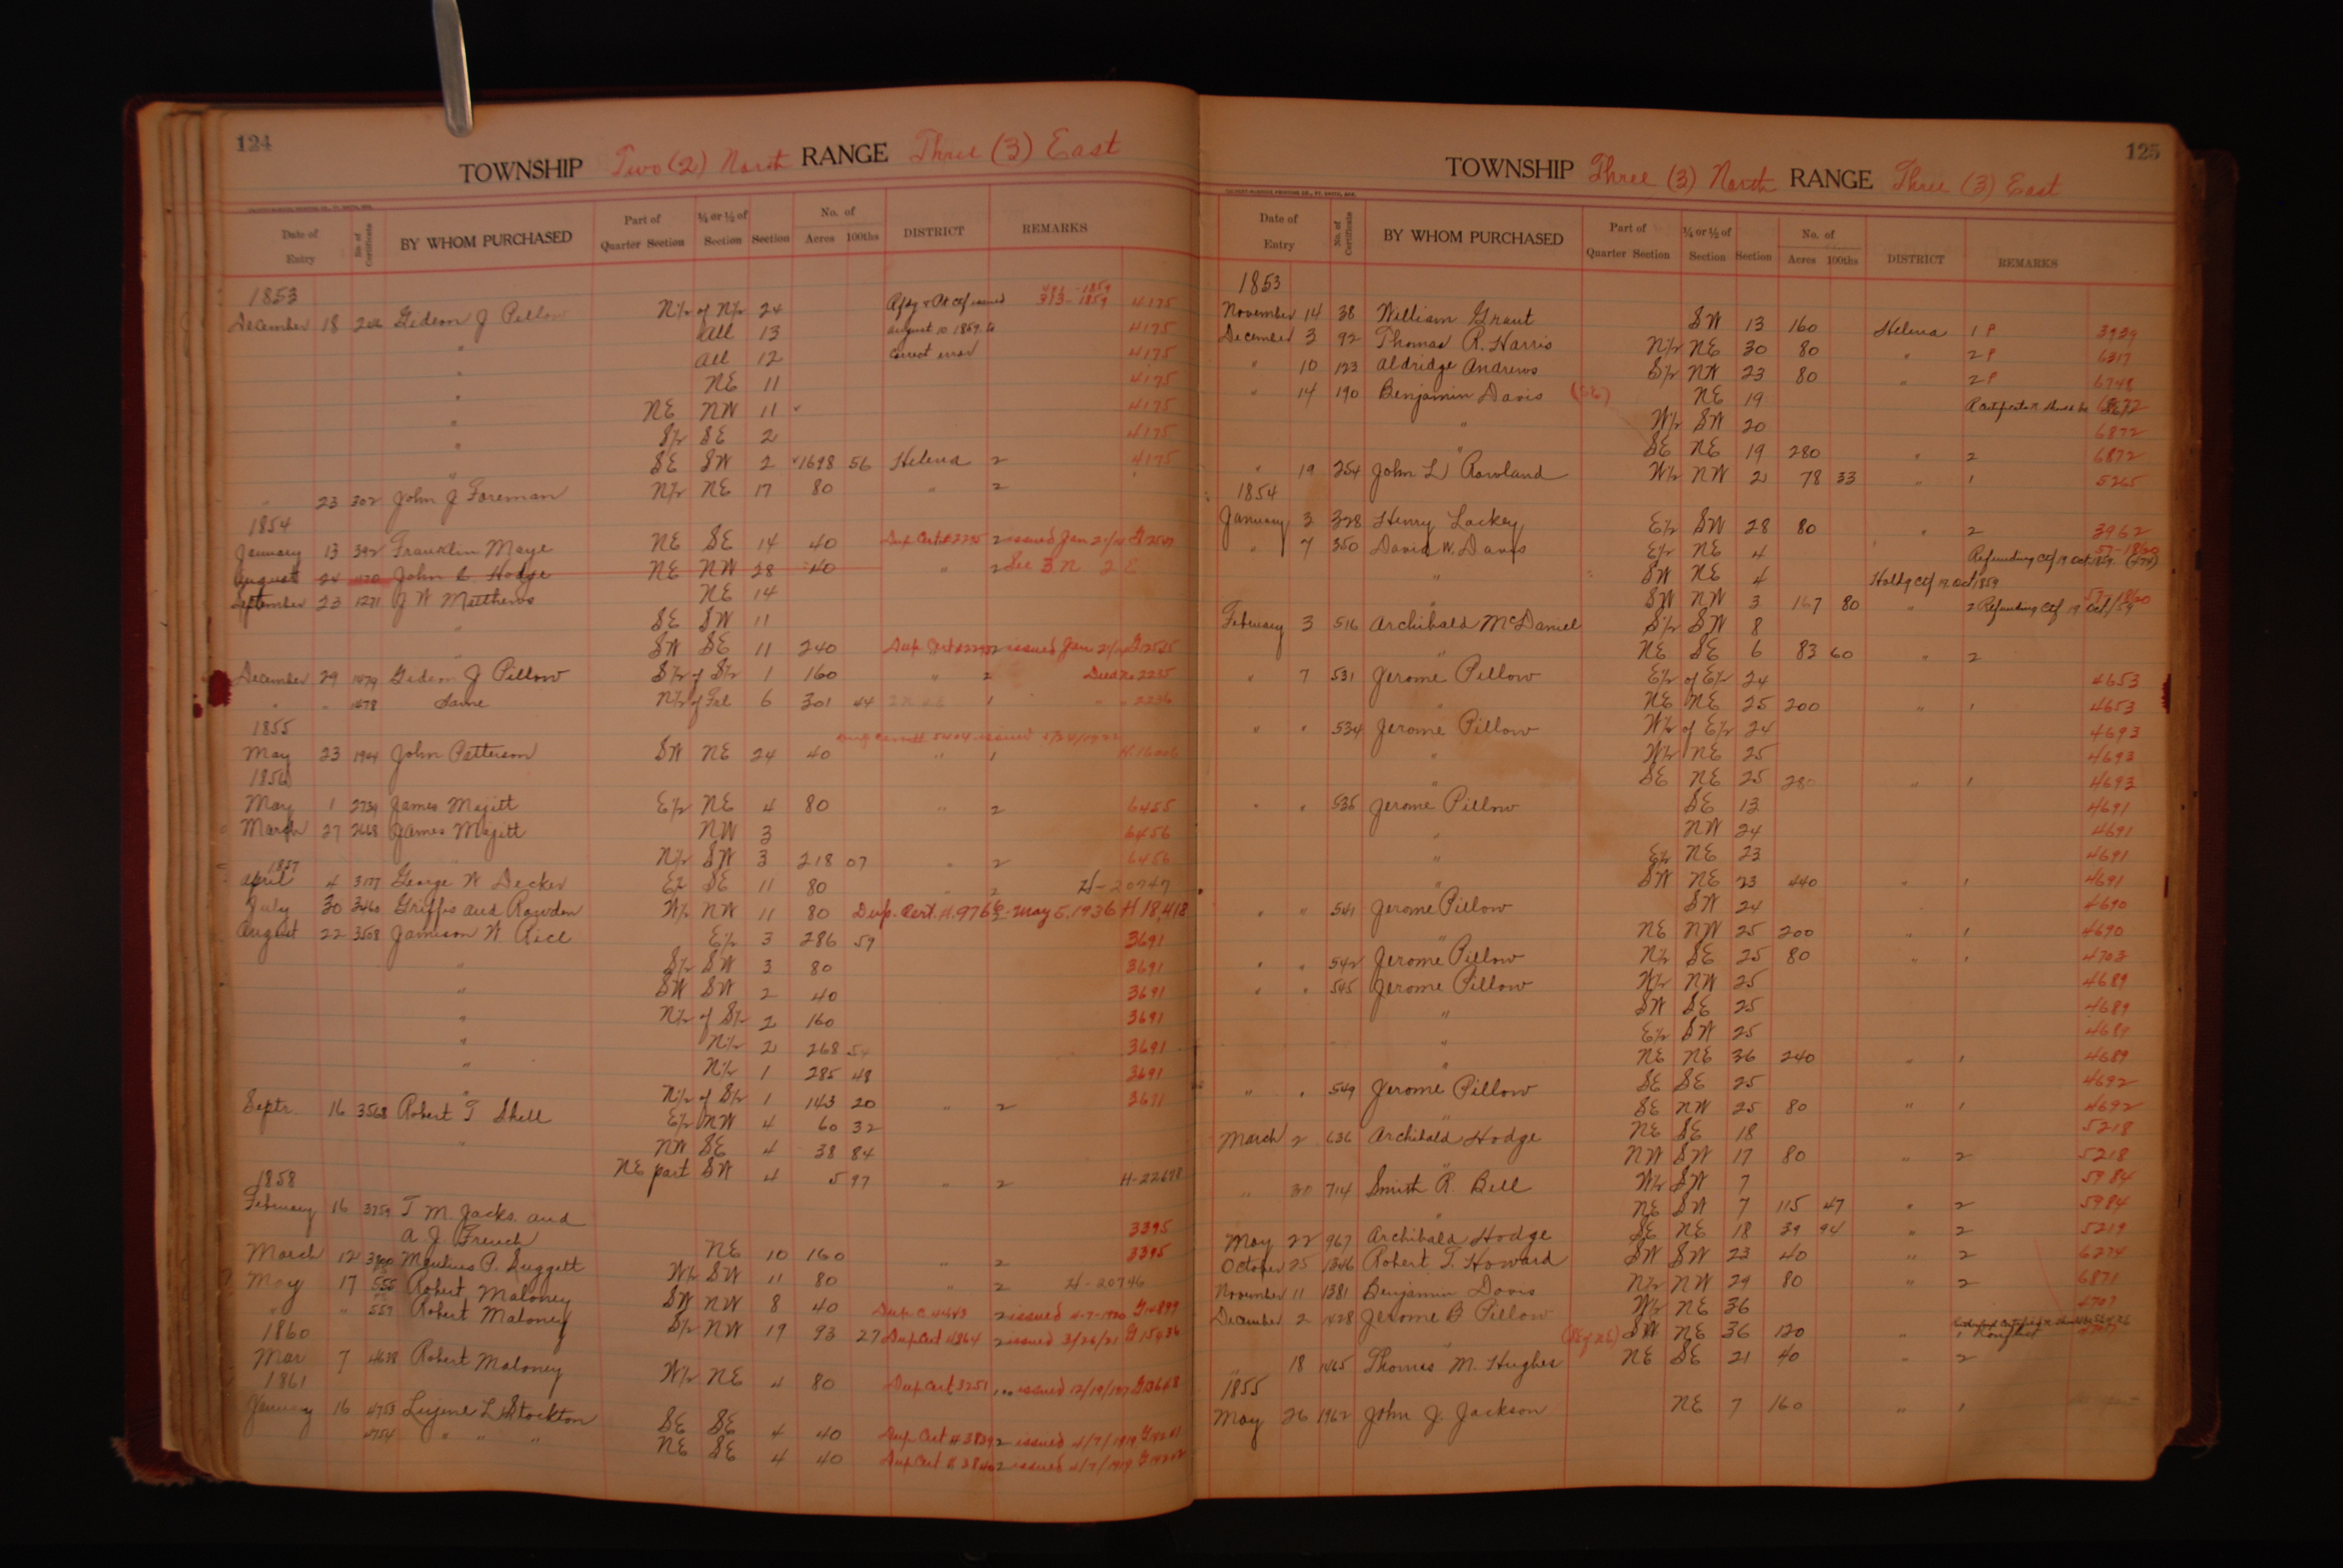 124
TOWNSHIP Two (2) North RANGE Three (3) East
Date of Entry No. of Certificate BY WHOM PURCHASED Part of Quarter Section ¼ or ½ of Section Section No. of Acres 100ths DISTRICT REMARKS
1853
December 18 Gideon J Pillow N½ of N½ 24 4175
" All 13 august 10 1859 to 4175
" All 12 correct error 4175
" NE 11 4175
" NE NW 11 4175
" S½ SE 2 4175
" SE SW 2 1698 56 Helena 2 4175
" 23 302 John J Foreman N½ NE 17 80 " 2
1854
January 13 392 Franklin Maye NE SE 14 40 Dup Cert # 2295 2 issued Jan 21/
August 24 470 John C. Hodge NE NW 28 40 " 2 See 3 N 2 E
September 23 1271 J W Matthews NE 14
" SE SW 11
" SW SE 11 240 Dup Cert 2 issued Jan 21/
December 29 1479 Gideon J Pillow S½ of S½ 1 160 " 2 Deed No 2235
" " 1478 Same N½ of Fal 6 301 44 1 " " 2236
1855
May 23 1944 John Patterson SW NE 24 40 " 1 H 16006
1856
May 1 2739 James Majitt E½ NE 4 80 " 2 6455
March 27 2668 James Majitt NW 3 6456
N½ SW 3 218 07 " 2 6456
1857
April 4 3177 George W Decker E½ SE 11 80 " 2 H-20747
July 30 3460 Griffis and Rawdon W½ NW 11 80 Dup. Cert. #. 976 May 5, 1936 H 18,418
August 22 3508 Jamison W Rice E½ 3 286 59 3691
" S½ SW 3 80 3691
" SW SW 2 40 3691
" N½ of S½ 2 160 3691
" N½ 2 268 54 3691
" N½ 1 285 48 3691
" N½ of S½ 1 143 20 " 2 3691
Septr. 16 3568 Robert T Shell E½ NW 4 60 32
" NW SE 4 38 84
NE part SW 4 5 97 " 2 H-22678
1858
February 16 3759 T M. Jacks. and
A. J. French NE 10 160 " 2 3395
3395
March 12 3800 P. Suggett W½ SW 11 80 " 2 H-20746
May 17 555 Robert Maloney SW NW 8 40 Dup C # 4643 2 issued 4-7-1920 G 14899
" " 557 Robert Maloney S½ NW 19 93 27 Dup Cert 4864 2 issued 3/26/21 G 15436
1860
Mar 7 4638 Robert Maloney W½ NE 4 80 Dup Cert 3251 issued 12/19/197 G 13668
1861
January 16 4753 Lujene L Stockton SE SE 4 40 Dup Cert # 3839 2 issued 4/7/1919 G
4754 " " " NE SE 4 40 Dup Cert # 3840 2 issued 4/7/1919 G
125
TOWNSHIP Three (3) North RANGE Three (3) East
Date of Entry No. of Certificate BY WHOM PURCHASED Part of Quarter Section ¼ or ½ of Section Section No. of Acres 100ths DISTRICT REMARKS
1853
November 14 38 William Grant SW 13 160 Helena 1 P 3939
December 3 92 Thomas R. Harris N½ NE 30 80 " 2 P 6317
" 10 123 Aldridge Andrews S½ NW 23 80 " 2 P 6748
" 14 190 Benjamin Davis (SE) NE 19 6872
" W½ SW 20 6872
" SE NE 19 280 " 2 6872
" 19 254 John L Rowland W½ NW 2 78 33 " 1 5265
1854
January 3 328 Henry Lackey E½ SW 28 80 " 2 3962
" 7 350 David W. Davis E½ NE 4 Refunding Ctf 19 Oct 1859
" SW NE 4 Holdg Ctf 19 Oct 1859
" SW NW 3 167 80 " 2 Refunding Ctf 19 Oct/59
February 3 516 Archibald McDaniel S½ SW 8
" NE SE 6 83 60 " 2
" 7 531 Jerome Pillow E½ of E½ 24 4653
" NE NE 25 200 " 1 4653
" " 534 Jerome Pillow W½ of E½ 24 4693
" W½ NE 25 4693
" SE NE 25 280 " 1 4693
" " 535 Jerome Pillow SE 13 4691
" NW 24 4691
" E½ NE 23 4691
" SW NE 23 440 " 1 4691
" " 541 Jerome Pillow SW 24 4690
" NE NW 25 200 " 1 4690
" " 542 Jerome Pillow N½ SE 25 80 " 1 4703
" " 545 Jerome Pillow W½ NW 25 4689
" SW SE 25 4689
" E½ SW 25 4689
" NE NE 36 240 " 1 4689
" " 549 Jerome Pillow SE SE 25 4692
" SE NW 25 80 " 1 4692
March 2 636 Archibald Hodge NE SE 18 5218
" NW SW 17 80 " 2 5218
" 30 714 Smith R Bell W½ SW 7 5984
" NE SW 7 115 47 " 2 5984
May 22 967 Archibald Hodge SE NE 18 39 94 " 2 5219
October 25 1346 Robert T. Howard SW SW 23 40 " 2 6274
November 11 1381 Benjamin Davis N½ NW 29 80 " 2 6871
December 2 1428 Jerome B Pillow W½ NE 36 4707
" SW NE 36 120 " 1
" 18 1465 Thomas M. Hughes NE SE 21 40 " 2
1855
May 26 1962 John J. Jackson NE 7 160 " 1